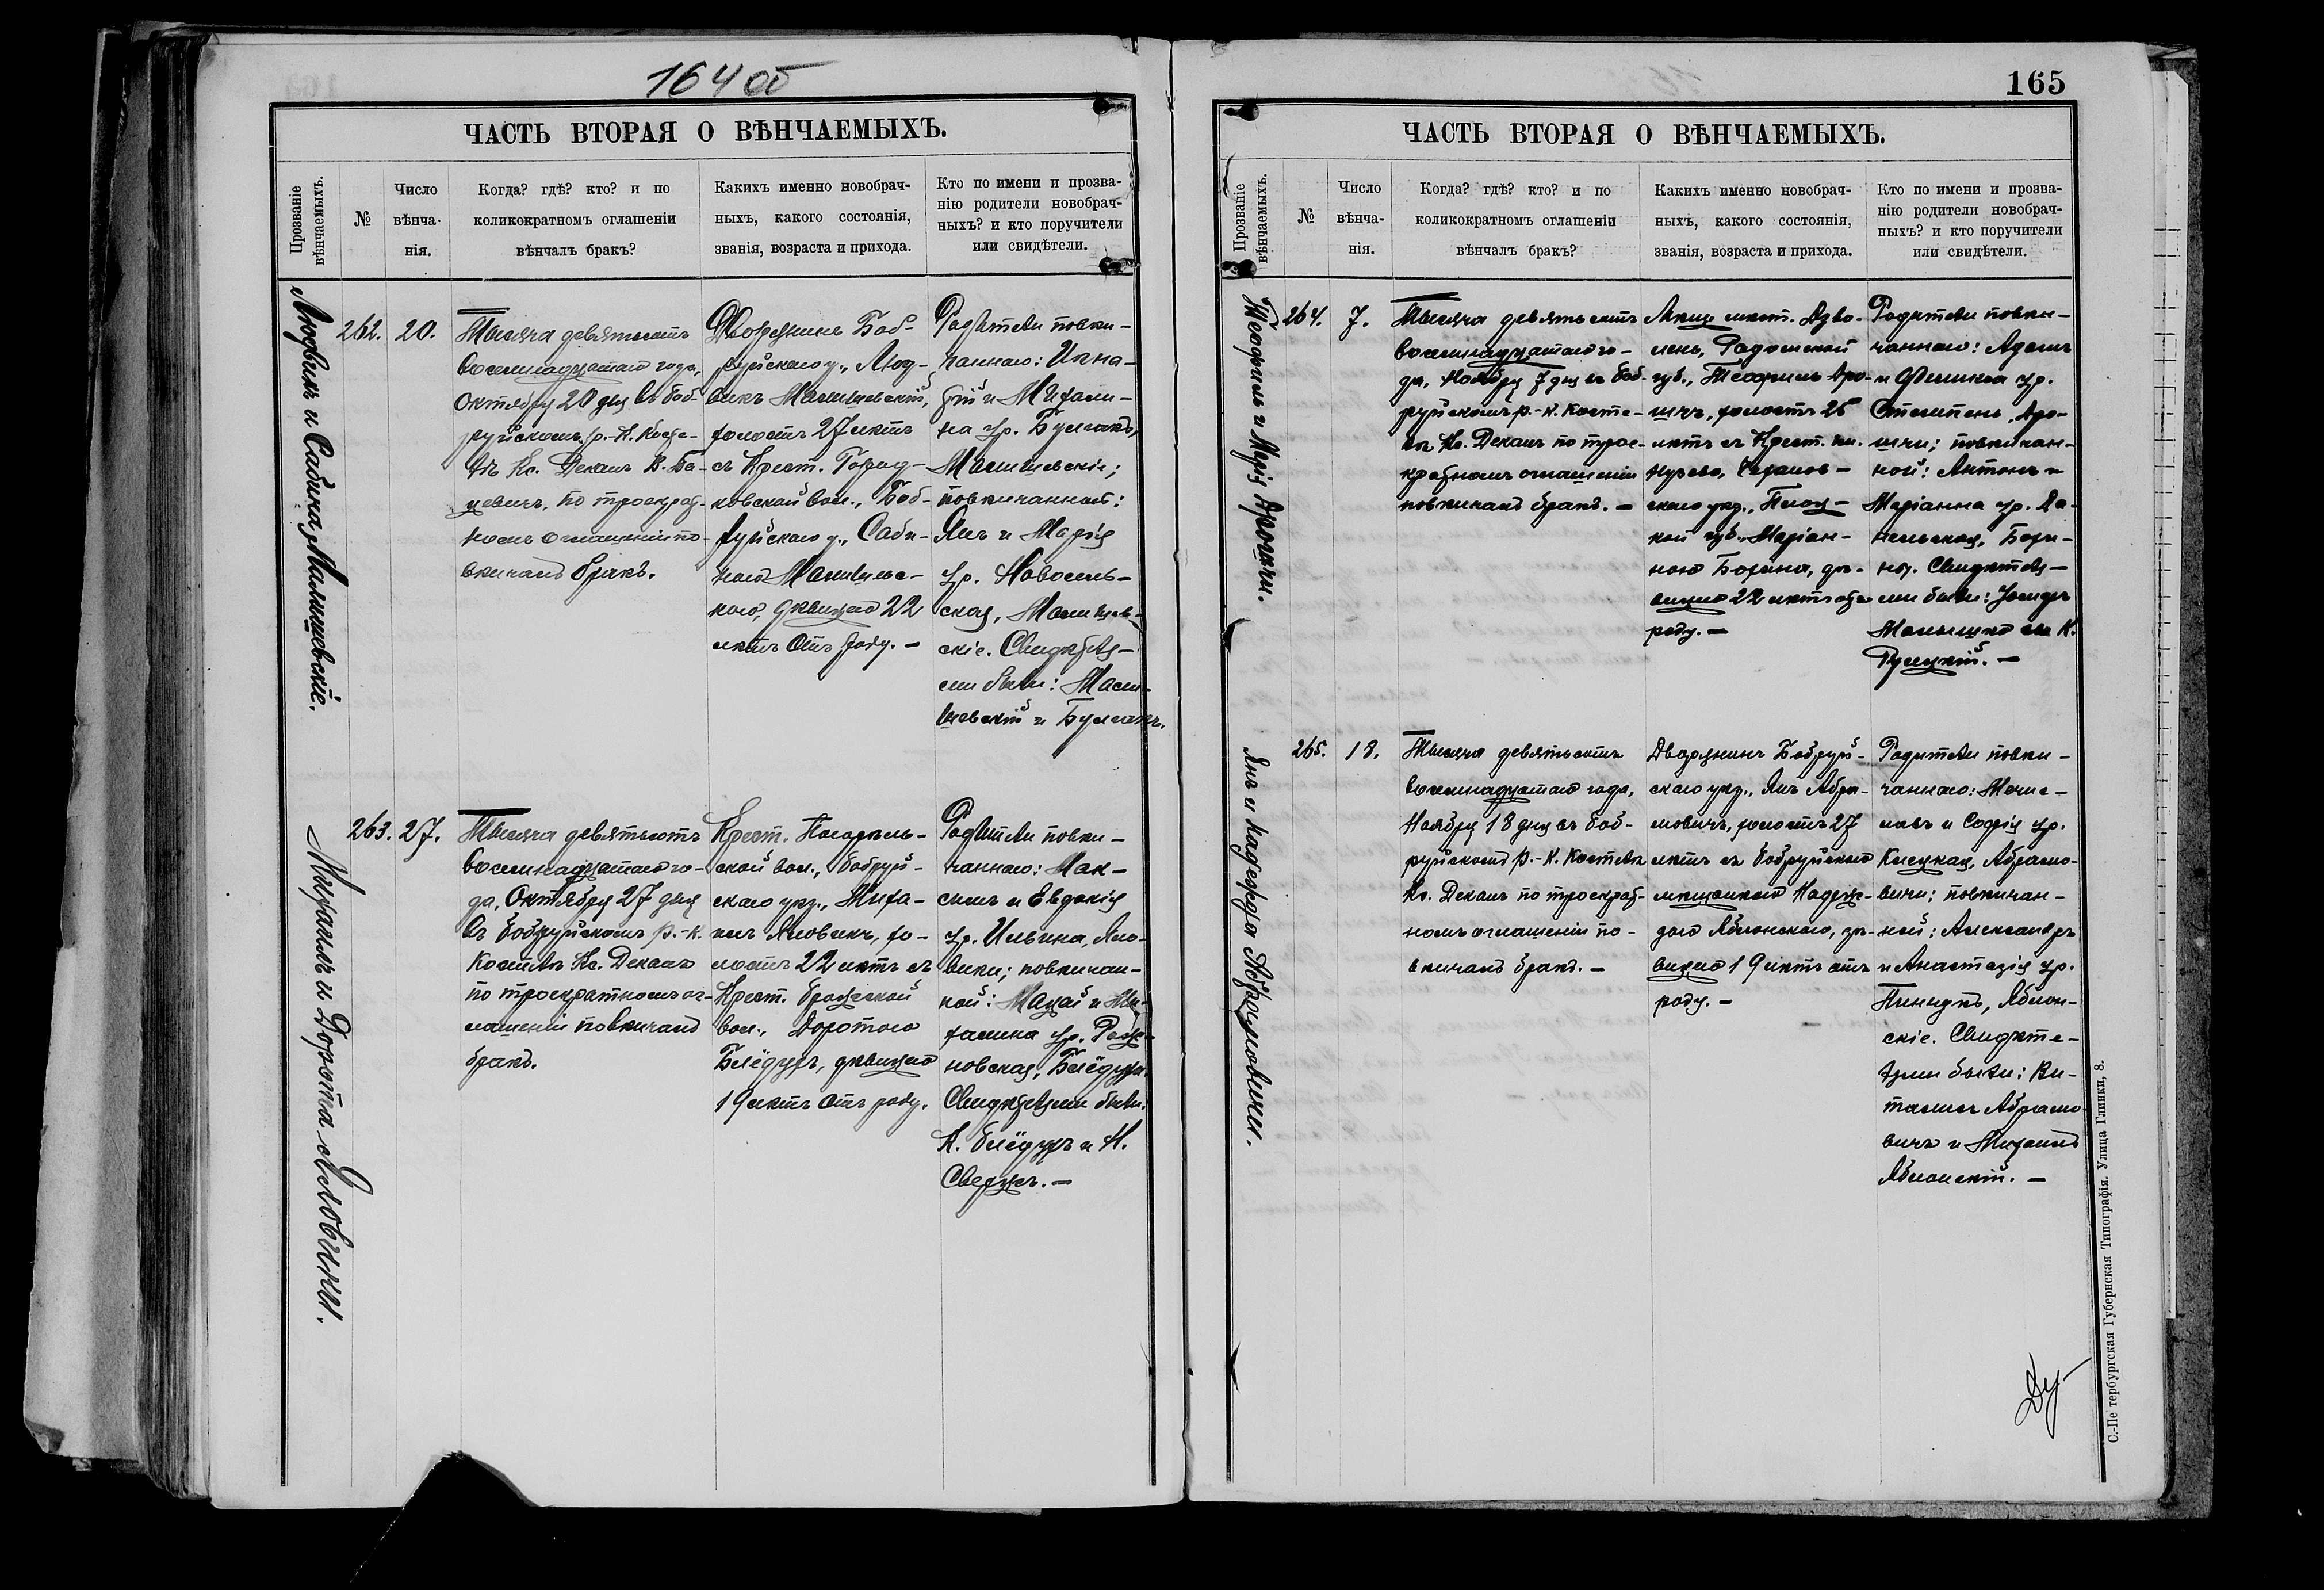 164 об
ЧАСТЬ ВТОРАЯ О ВѢНЧАЕМЫХЪ.
Прозваніе
вѣнчаемыхъ.
№
Число
вѣнча-
нія.
Когда? гдѣ? кто? и по
коликократномъ оглашеніи
вѣнчалъ бракъ?
Какихъ именно новобрач-
ныхъ, какого состоянія,
званія, возраста и прихода.
Кто по имени и прозва-
нію родители новобрач-
ныхъ? и кто поручители
или свидѣтели.
Людвикъ и Сабина Малишевскіе.
262.
20.
Тысяча девятьсотъ
восемнадцатаго года,
Октября 20 дня въ Боб-
руйскомъ р.-к. Косте-
лѣ Кс. Деканъ
по троекрат-
номъ оглашеніи по-
вѣнчалъ бракъ.
Дворянинъ Боб-
руйскаго у., Люд-
викъ Малишевскій,
холостъ 27 лѣтъ
съ Крест. Город-
ковской вол., Боб-
руйскаго у., Саби-
ною
дѣвицею 22
лѣтъ отъ роду. —
Родители повѣн-
чаннаго: Игна-
тій и Михали-
на ур. Булгакъ,
Малишевскіе;
повѣнчанной:
Янъ и Марія
ур. Новосель-
ская, Малишев-
скіе. Свидѣте-
ли были: Мали-
шевскій и Булгакъ.
Михаилъ и Дорота Яловики.
263.
27.
Тысяча девятьсотъ
восемнадцатаго го-
да, Октября 27 дня
въ Бобруйскомъ р.-к.
Костелѣ Кс. Деканъ
по троекратномъ ог-
лашеніи повѣнчалъ
бракъ.
Крест.
ской вол., Бобруй-
скаго уѣз., Миха-
илъ Яловикъ, хо-
лостъ 22 лѣтъ съ
Крест. Брожской
вол., Доротою
Блёдухъ, дѣвицею
19 лѣтъ отъ роду.
Родители повѣн-
чаннаго: Мак-
симъ и Евдокія
ур. Ильина, Яло-
вики; повѣнчан-
ной:
ур.
новская,
Свидѣтелями были:
и Н.
ЧАСТЬ ВТОРАЯ О ВѢНЧАЕМЫХЪ.
165
Прозваніе
вѣнчаемыхъ.
№
Число
вѣнча-
нія.
Когда? гдѣ? кто? и по
коликократномъ оглашеніи
вѣнчалъ бракъ?
Какихъ именно новобрач-
ныхъ, какого состоянія,
званія, возраста и прихода.
Кто по имени и прозва-
нію родители новобрач-
ныхъ? и кто поручители
или свидѣтели.
Теофиль и Марія
264.
7.
Тысяча девятьсотъ
восемнадцатаго го-
да, Ноября 7 дня въ Боб-
руйскомъ р.-к. Косте-
лѣ Кс. Деканъ по трое-
кратномъ оглашеніи
повѣнчалъ бракъ. —
Мѣщ. мѣст.
Радомской
губ., Теофиль
холостъ 25
лѣтъ съ Крест.
скаго уѣз., Плоц-
кой губ., Маріан-
ною Борина, дѣ-
вицею 22 лѣтъ отъ
роду. —
Родители повѣн-
чаннаго: Адамъ
и Фелиція ур.
Стемпень,
повѣнчан-
ной: Антонъ и
Маріанна ур.
Свидѣте-
ли были:
и К.
Рулицкій. —
Янъ и Надежда Абрамовичи.
265.
18.
Тысяча девятьсотъ
восемнадцатаго года,
Ноября 18 дня въ Боб-
руйскомъ р.-к. Костелѣ
Кс. Деканъ по троекрат-
номъ оглашеніи по-
вѣнчалъ бракъ. —
Дворянинъ Бобруй-
скаго уѣз., Янъ Абра-
мовичъ, холостъ 27
лѣтъ съ Бобруйскою
мѣщанкою Надеж-
дою Яблонскою, дѣ-
вицею 19 лѣтъ отъ
роду. —
Родители повѣн-
чаннаго: Мечис-
лавъ и Софія ур.
Абрамо-
вичи; повѣнчан-
ной: Александръ
и Анастасія ур.
Яблон-
скіе. Свидѣте-
лями были: Ви-
талисъ Абрамо-
вичъ и Михаилъ
Яблонскій. —
С.-Петербургская Губернская Типографія. Улица Глинки, 8.